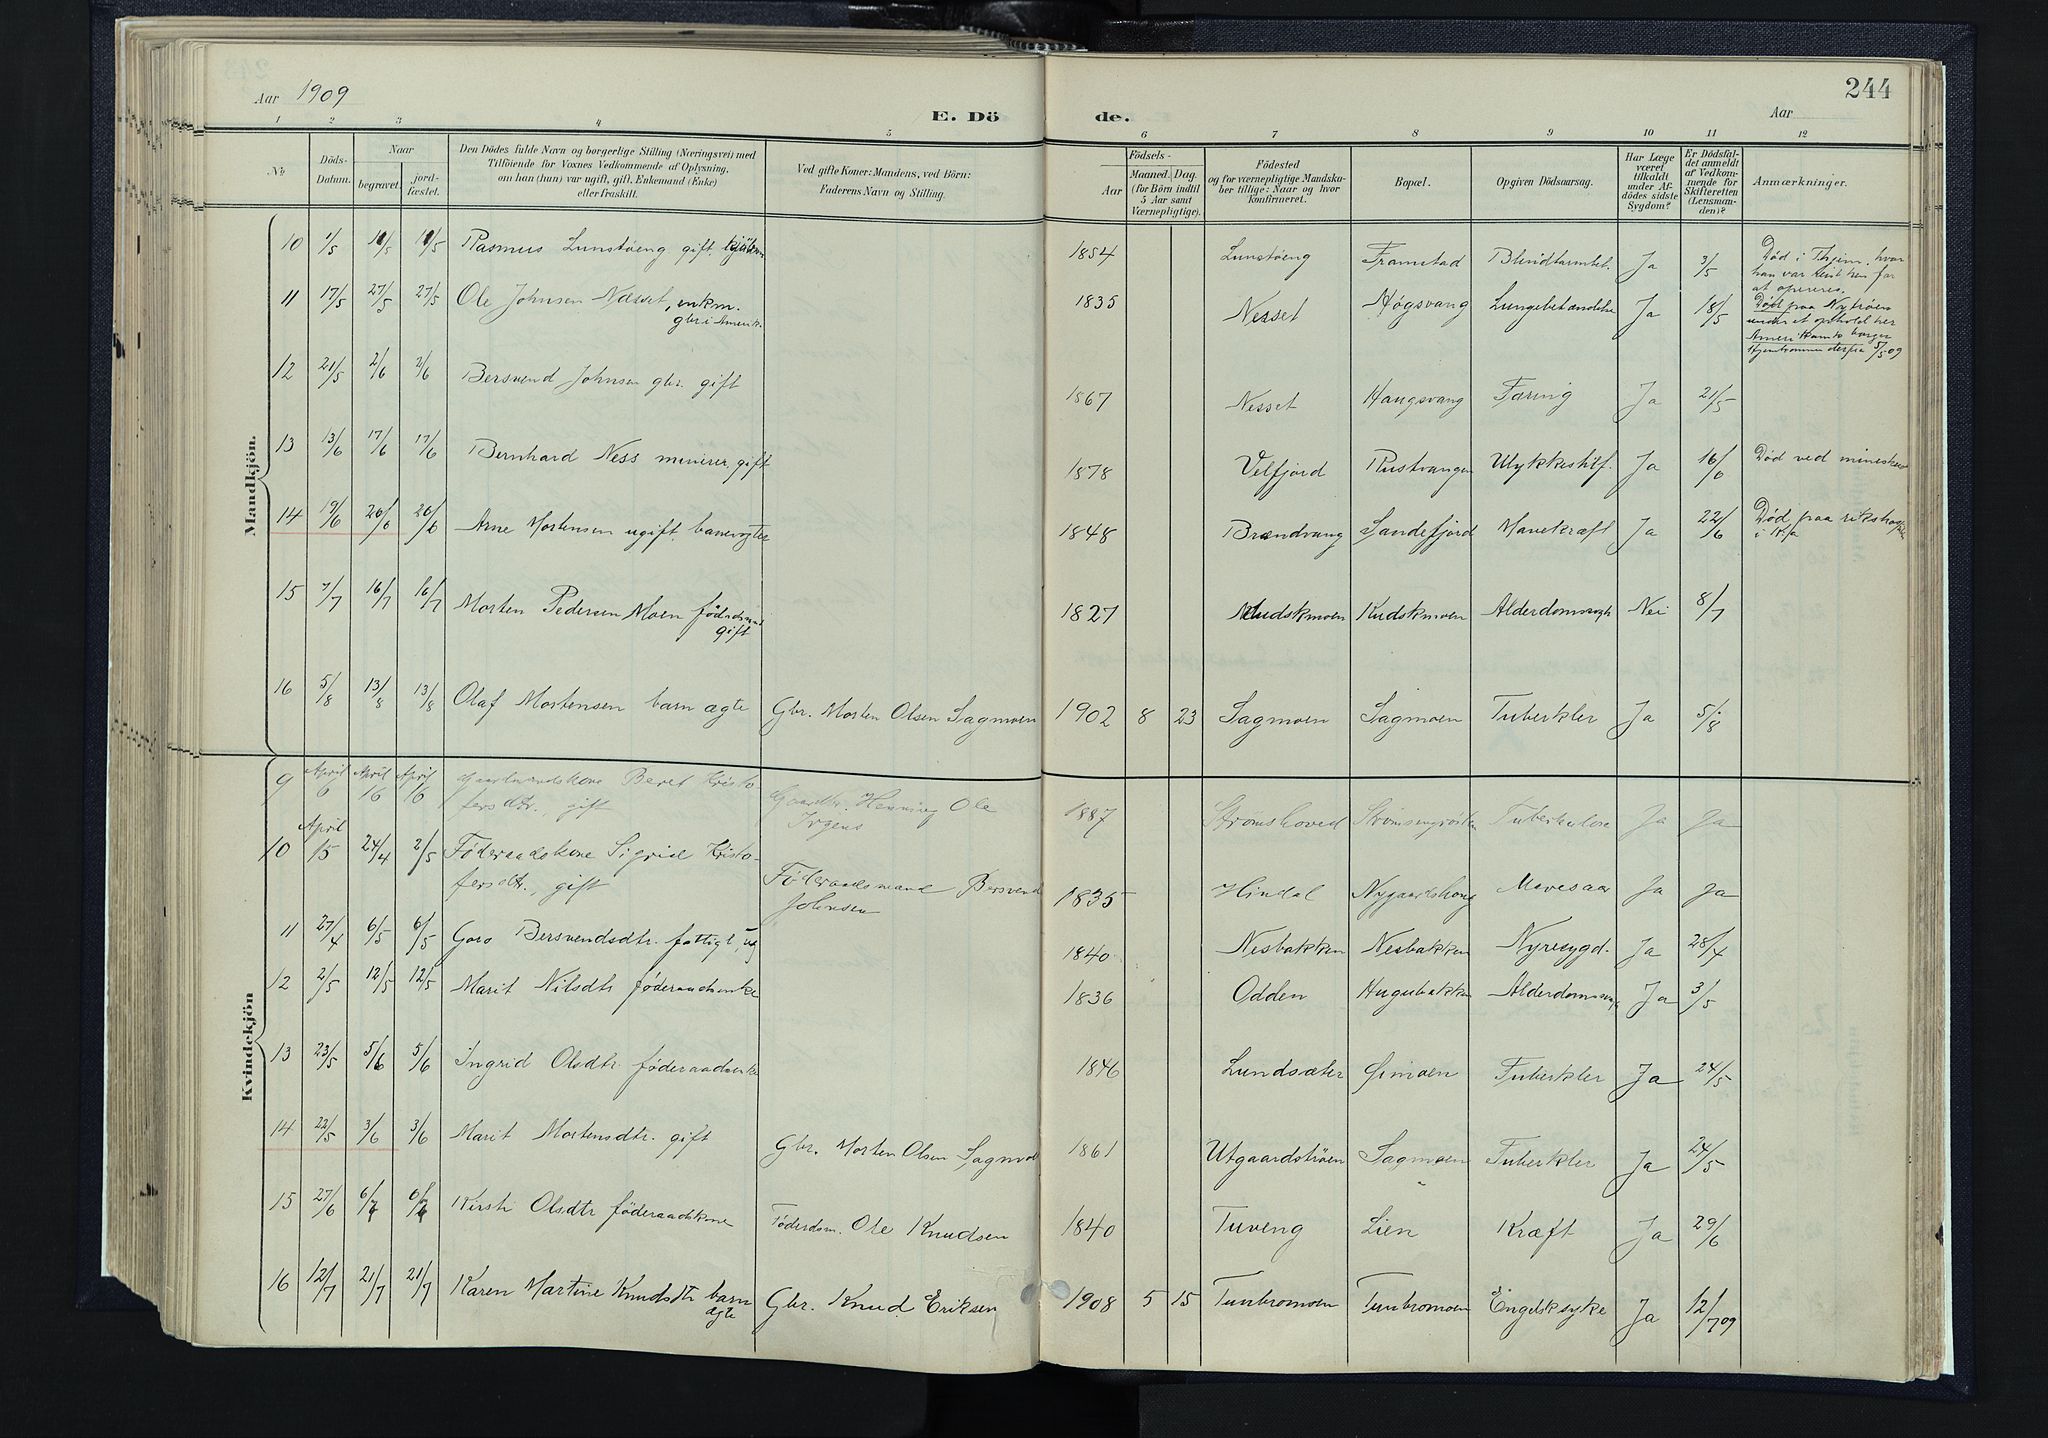 Aar 1909
E. Döde.
244
Aar
1 2 3 4 5 6 7 8 9 10 11 12
No.
Döds-Datum.
Naar
begravet.
jordfæstet.
Den Dödes fulde Navn og borgerlige Stilling (Næringsvei) med
Tilföiende for Voxnes Vedkommende af Oplysning,
om han (hun) var ugift, gift, Enkemand (Enke)
eller fraskilt.
Ved gifte Koner: Mandens, ved Börn:
Faderens Navn og Stilling.
Födsels-
Aar
Maaned. Dag.
(for Börn indtil
5 Aar samt
Værnepligtige).
Födested
og for værnepligtige Mandskaber tillige: Naar og hvor
konfirmeret.
Bopæl.
Opgiven Dödsaarsag.
Har Læge
været
tilkaldt
under Afdödes sidste
Sygdom?
Er Dödsfaldet anmeldt
af Vedkommende for
Skifteretten
(Lensmanden)?
Anmærkninger.
Mandkjön.
10 1/5 11/5 11/5 Rasmus Lunstøeng gift 1854 Lunstøeng Framstad Blindtarmbet. Ja 3/5 Død i Thjem, hvor
han var reist hen for
at opereres.
11 17/5 27/5 27/5 Ole Johnsen Næsset, enkm. 1835 Nesset Høgsvang Lungebetændelse Ja 18/5 Død paa Nytrøen
gbr i Amerik. under et ophold her
Amerikansk borger
Hjemkommen derfra 5/5 09
12 21/5 2/6 2/6 Bersvend Johnsen gbr. gift 1867 Nesset Haugsvang Tæring Ja 21/5
13 13/6 17/6 17/6 Bernhard Ness minerer, gift 1878 Velfjord Rustvangen Ulykkestilf. Ja 16/6 Død ved mineskud
14 19/6 26/6 26/6 Arne Mortensen ugift, banevogter 1848 Brændvang Sandefjord Mavekræft Ja 22/6 Død paa rikshosp
i Kr.a
15 7/7 16/7 16/7 Morten Pedersen Moen føderdsmd 1827 Kudskmoen Kudskmoen Alderdomssvagh Nei 8/7
gift
16 5/8 13/8 13/8 Olaf Mortensen barn ægte Gbr. Morten Olsen Sagmoen 1902 8 23 Sagmoen Sagmoen Tuberkler Ja 5/8
Kvindekjön
9 April 6 April 16 April 16 Gaardmandskone Beret Kristo- Gaardbr. Henning Ole 1887 Strømshoved Strømsengrøsten Tuberkulose Ja Ja
fersdtr., gift Irgens
10 April 15 24/4 2/5 Føderaadskone Sigrid Kristo- Føderaadsmand Bersvend 1835 Hindal Nygaardshaug Mavesaar Ja Ja
fersdtr., gift Johnsen
11 27/4 6/5 6/5 Goro Bersvendsdtr. fattigl., ug 1840 Nesbakken Nesbakken Nyresygd. Ja 28/4
12 2/5 12/5 12/5 Marit Nilsdtr føderaadsenke 1836 Odden Hugubakken Alderdomssvag Ja 3/5
13 23/5 5/6 5/6 Ingrid Olsdtr. føderaadsenke 1846 Lundsæter Øimoen Tuberkler Ja 24/5
14 22/5 3/6 3/6 Marit Mortensdtr. gift Gbr. Morten Olsen Sagmoe 1861 Utgaardstrøen Sagmoen Tuberkler Ja 24/5
15 27/6 6/7 6/7 Kirsti Olsdtr føderaadskone Føderdsm. Ole Knudsen 1840 Tuveng Lien Kræft Ja 29/6
16 12/7 21/7 21/7 Karen Martine Knudsdtr barn Gbr. Knud Eriksen 1908 5 15 Tunbromoen Tunbromoen Engelsksyke Ja 12/7 09
ægte